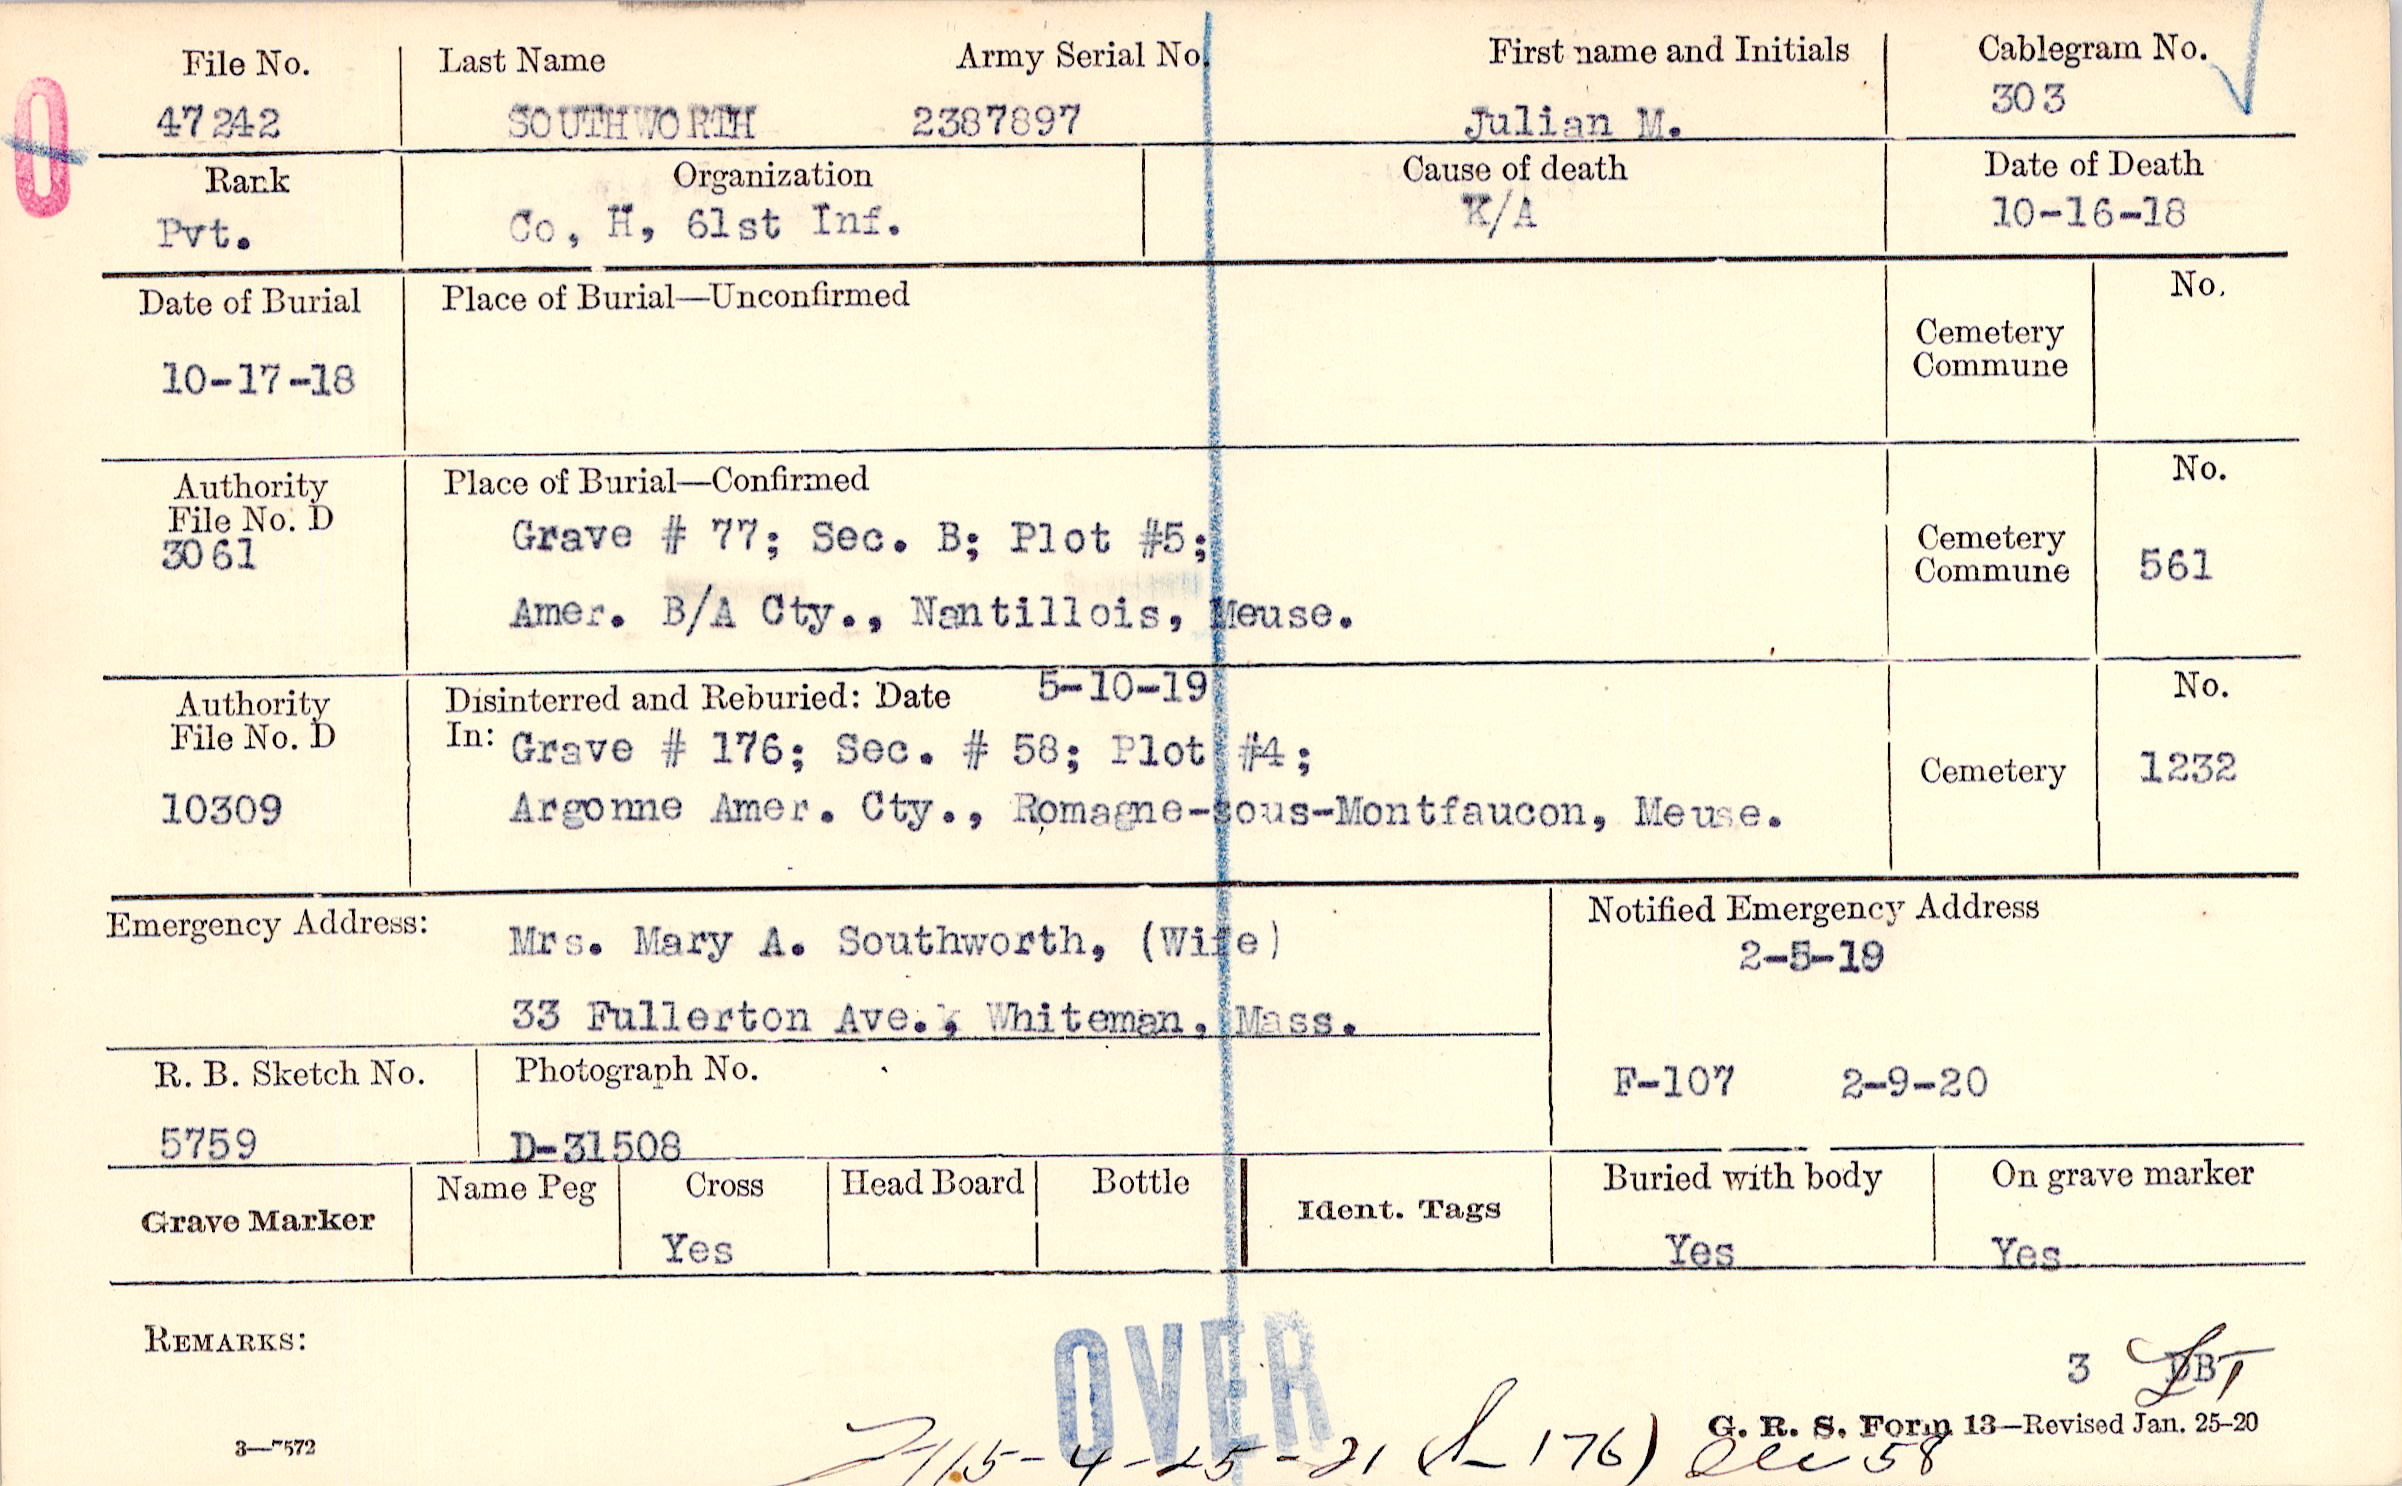 File No. Last Name Army Serial No. First name and Initials Cablegram No.
47242 SOUTHWORTH 2387897 Julian M. 303
Rank Organization Cause of death Date of Death
Pvt. Co, H, 61st Inf. K/A 10-16-18
Date of Burial Place of Burial—Unconfirmed No.
Cemetery
Commune
10-17-18
Authority Place of Burial—Confirmed No.
File No. D
3061 Grave # 77; Sec. B; Plot #5; Cemetery
Commune 561
Amer. B/A Cty., Nantillois, Meuse.
Authority Disinterred and Reburied: Date 5-10-19 No.
File No. D In: Grave # 176; Sec. # 58; Plot #4;
Cemetery 1232
10309 Argonne Amer. Cty., Romagne-sous-Montfaucon, Meuse.
Emergency Address: Mrs. Mary A. Southworth, (Wife) Notified Emergency Address
2-5-19
33 Fullerton Ave., Whiteman, Mass.
R. B. Sketch No. Photograph No. F-107 2-9-20
5759 D-31508
Grave Marker Name Peg Cross Head Board Bottle Ident. Tags Buried with body On grave marker
Yes Yes Yes
REMARKS:
OVER
3
G. R. S. Form 13—Revised Jan. 25-20
3—7572
-4-25-21 176) 58